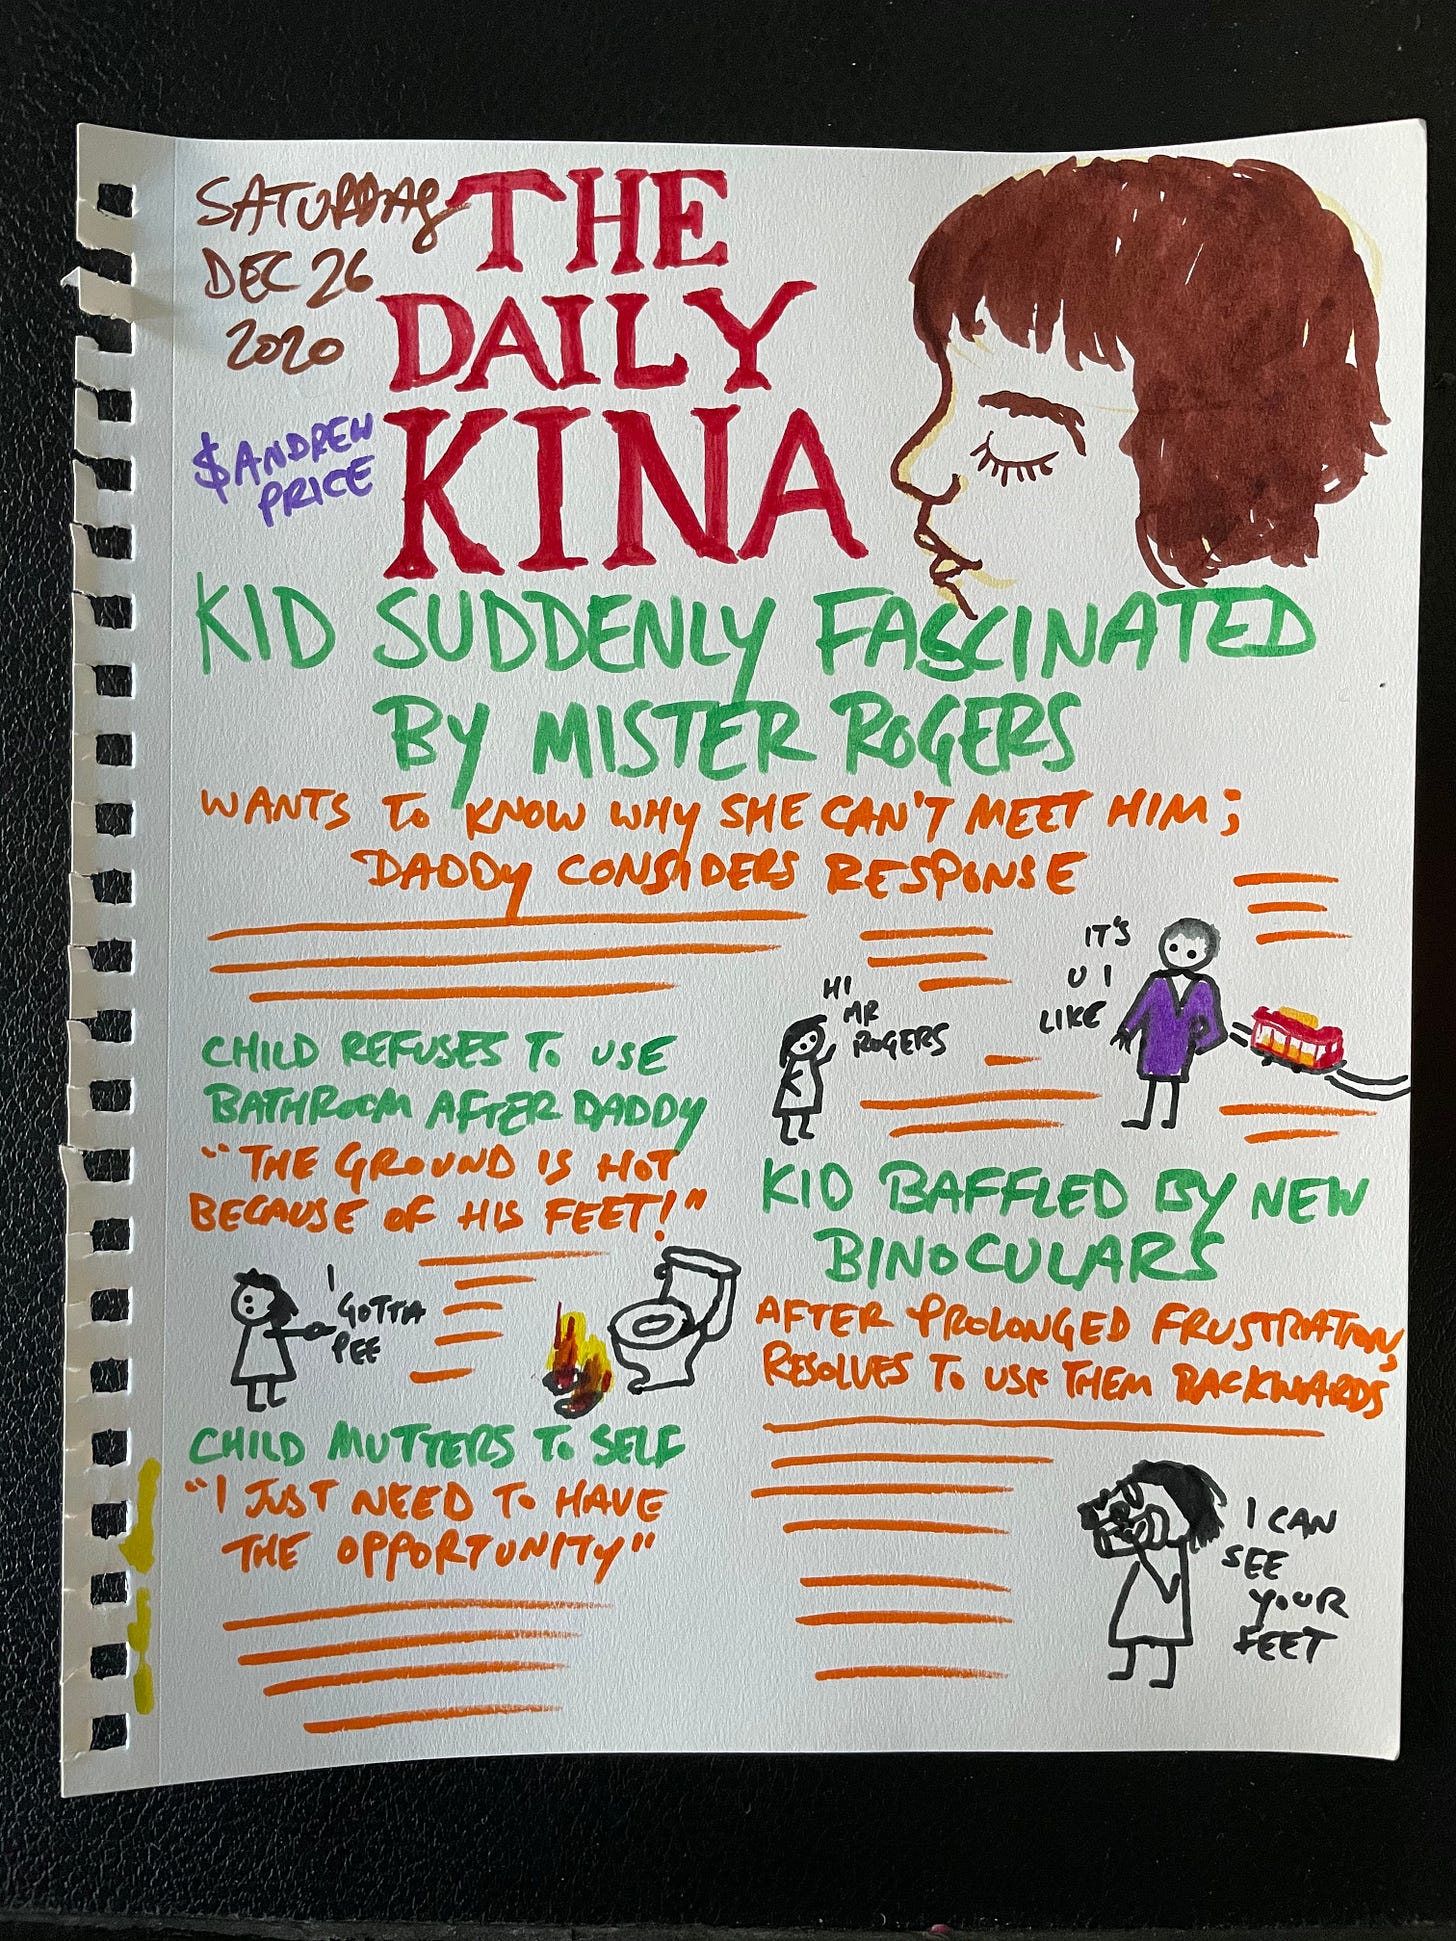 SATURDAY
DEC 26
2020
$ANDREW
PRICE
THE
DAILY
KINA
KID SUDDENLY FASCINATED
BY MISTER ROGERS
WANTS TO KNOW WHY SHE CAN'T MEET HIM;
DADDY CONSIDERS RESPONSE
HI
MR
ROGERS
IT'S
U I
LIKE
CHILD REFUSES TO USE
BATHROOM AFTER DADDY
"THE GROUND IS HOT
BECAUSE OF HIS FEET!"
I
GOTTA
PEE
CHILD MUTTERS TO SELF
"I JUST NEED TO HAVE
THE OPPORTUNITY"
KID BAFFLED BY NEW
BINOCULARS
AFTER PROLONGED FRUSTRATION,
RESOLVES TO USE THEM BACKWARDS
I CAN
SEE
YOUR
FEET